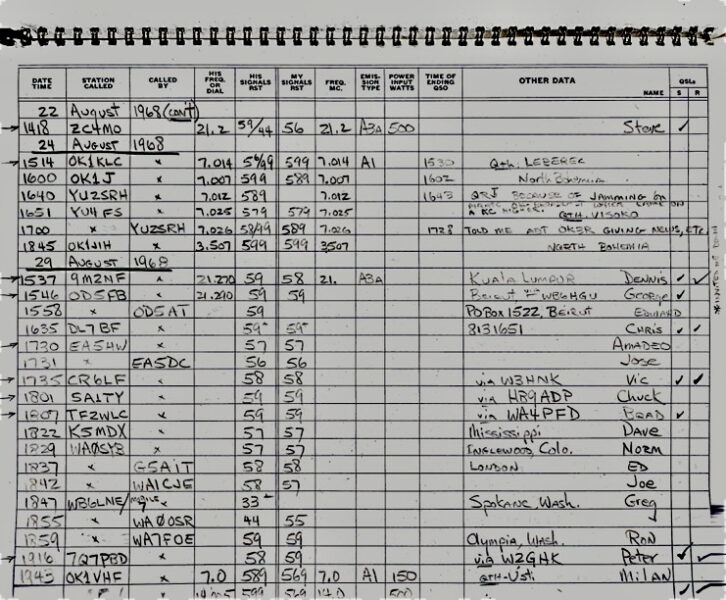 DATE TIME STATION CALLED CALLED BY HIS FREQ. OR DIAL HIS SIGNALS RST MY SIGNALS RST FREQ. MC. EMIS-SION TYPE POWER INPUT WATTS TIME OF ENDING QSO OTHER DATA NAME QSLs S R
22 August 1968 (con't)
1418 ZC4MO x 21.2 59/44 56 21.2 A3a 500 Steve ✓
24 August 1968
1514 OK1KLC x 7.014 599 7.014 A1 1530 Qth. LEBEREC
1600 OK1J x 7.007 599 589 7.007 1602 North Bohemia
1640 YU2SRH x 7.012 589 7.012 1643 BECAUSE OF JAMMING ON
1651 YU4FS x 7.025 579 579 7.025 A KC HIGHER. QTH. VISOKO
1700 x YU2SRH 7.026 58/99 589 7.026 1728 TOLD ME ABT OK3R GIVING NEWS, ETC
1845 OK1JIH x 3.507 599 599 3.507 NORTH BOHEMIA
29 August 1968
1537 9M2NF x 21.270 59 58 21. A3a KUALA LUMPUR Dennis ✓ ✓
1546 OD5FB x 21.270 59 59 Beirut via WB6HGU George ✓
1558 x OD5AT 59 PO Box 1522, BEIRUT EDWARD
1635 DL7BF x 59 59 8131651 Chris ✓ ✓
1730 EA5HW x 57 57 AMADEO
1731 x EA5DC 56 56 Jose
1735 CR6LF x 58 58 via W3HNK Vic ✓ ✓
1801 5A1TY x 59 59 via HB9ADP Chuck
1807 TF2WLC x 59 59 via WA4PFD BRAD ✓
1822 K5MDX x 57 57 Mississippi Dave
1829 WA0SYB x 57 57 INGLEWOOD, Colo. NORM
1837 x G5AIT 58 58 LONDON ED
1842 x WA1CJE 58 57 Joe
1847 WB6LNE/mobile x 33 Spokane, Wash. Greg
1855 x WA0OSR 44 55
1859 x WA7FOE 59 59 Olympia, Wash. RON
1916 7Q7PBD x 58 59 via W2GHK Peter ✓
1943 OK1VHF x 7.0 589 569 7.0 A1 150 QTH-Usti MILAN
599 569 14.0 500 ✓ ✓